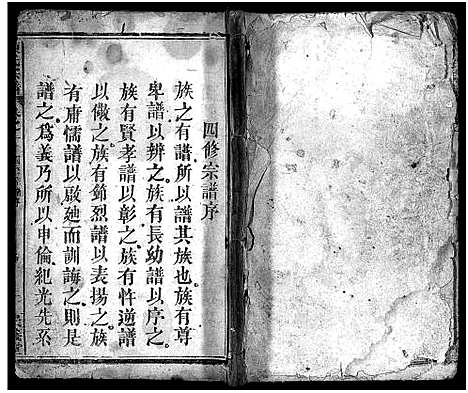 四修宗譜序
族之有譜所以譜其族也族有尊
卑譜以辨之族有長幼譜以序之
族有賢孝譜以彰之族有忤逆譜
以儆之族有節烈譜以表揚之族
有庸儒譜以啟廸而訓誨之則是
譜之爲義乃所以申倫紀光先系